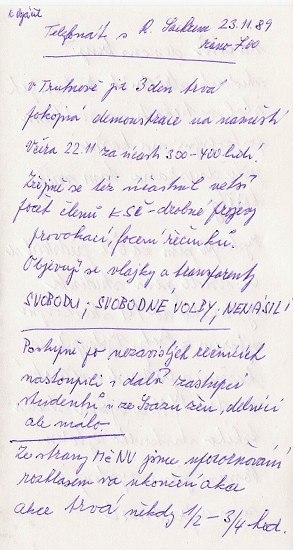 k využití
Telefonát s R. 23.11.89
ráno 7.00
v Trutnově již 3 den trvá
pokojná demonstrace na náměstí
Včera 22.11 za účasti 300-400 lidí.
Zřejmě se též účastnil větší
počet členů KSČ - drobné projevy
provokací, focení řečníků.
Objevují se vlajky a transparenty
SVOBODU; SVOBODNÉ VOLBY; NENÁSILÍ
Postupně po nezávislých řečnících
nastoupili i další zástupci
studentů i ze Svazu žen, dělníci
ale málo.
Ze strany MěNV jsme upozorňováni
rozhlasem na ukončení akce
akce trvá někdy 1/2 - 3/4 hod.